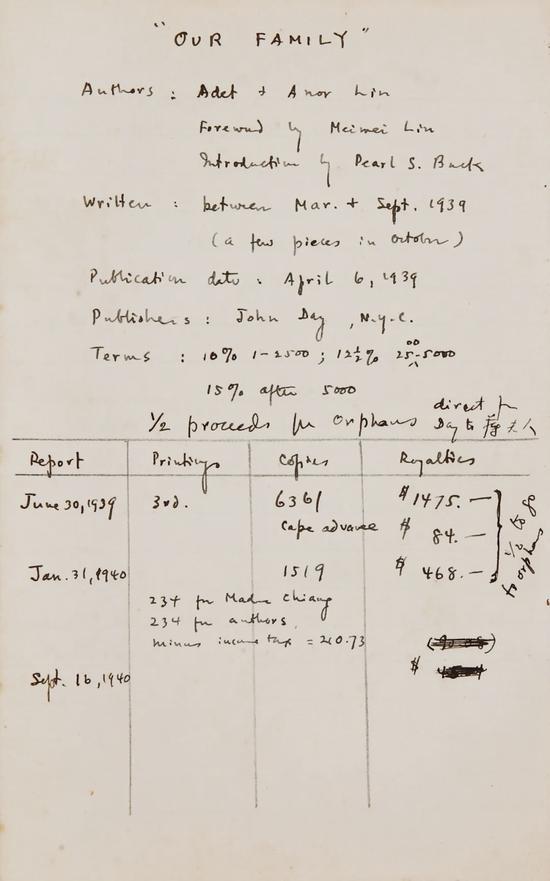 "OUR FAMILY"
Authors : Adet + Anor Lin
Foreword by Meimei Lin
Introduction by Pearl S. Buck
Written : between Mar. + Sept. 1939
(a few pieces in October)
Publication date : April 6, 1939
Publishers : John Day, N.Y.C.
Terms : 10% 1-2500 ; 12½% 2500-5000
15% after 5000
½ proceeds for orphans direct fr
Day to 夫人
Report Printings Copies Royalties
June 30, 1939 3rd. 6361 $1475.—
Cape advance $ 84.—
Jan. 31, 1940 1519 $ 468.—
½ to go
to orphans
234 for Madame Chiang
234 for authors
minus income tax = 210.73
Sept. 16, 1940 $